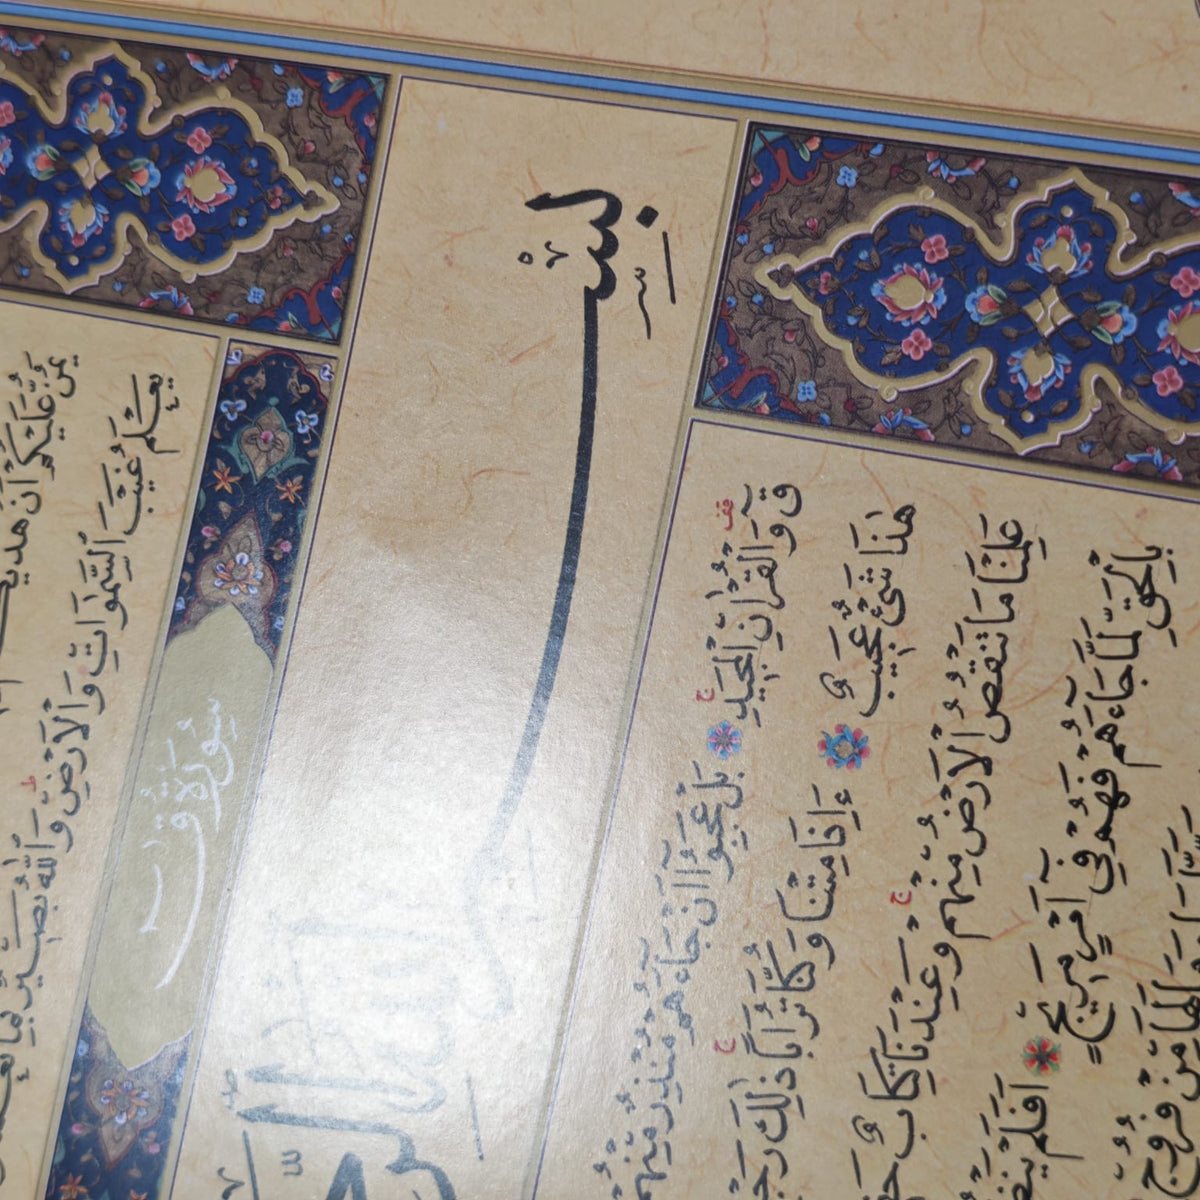 يَمُنُّ عَلَيْكُمْ اَنْ هَدٰيكُمْ
يَعْلَمُ غَيْبَ السَّمٰوَاتِ وَالْاَرْضِ ۜ وَاللّٰهُ بَصٖيرٌ بِمَا تَعْمَلُونَ
سُورَةُ قٓ
بِسْمِ اللّٰهِ الرَّ
قٓ وَالْقُرْاٰنِ الْمَجٖيدِ بَلْ عَجِبُٓوا اَنْ جَٓاءَهُمْ مُنْذِرٌ مِنْهُمْ
هٰذَا شَیْءٌ عَجٖيبٌ ءَاِذَا مِتْنَا وَكُنَّا تُرَابًا ذٰلِكَ رَجْ
عَلِمْنَا مَا تَنْقُصُ الْاَرْضُ مِنْهُمْ وَعِنْدَنَا كِتَابٌ حَفٖ
بِالْحَقِّ لَمَّا جَٓاءَهُمْ فَهُمْ فٖٓي اَمْرٍ مَرٖيجٍ اَفَلَمْ يَنْظُ
وَمَا لَهَا مِنْ فُرُوجٍ